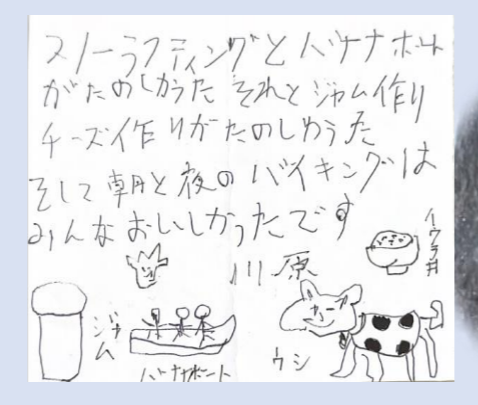 スノーラフティングとバナナボート
がたのしかった それとジャム作り
チーズ作りがたのしかった
そして朝と夜のバイキングは
みんなおいしかったです
川原
イクラ丼
ジャム
バナナボート
ウシ